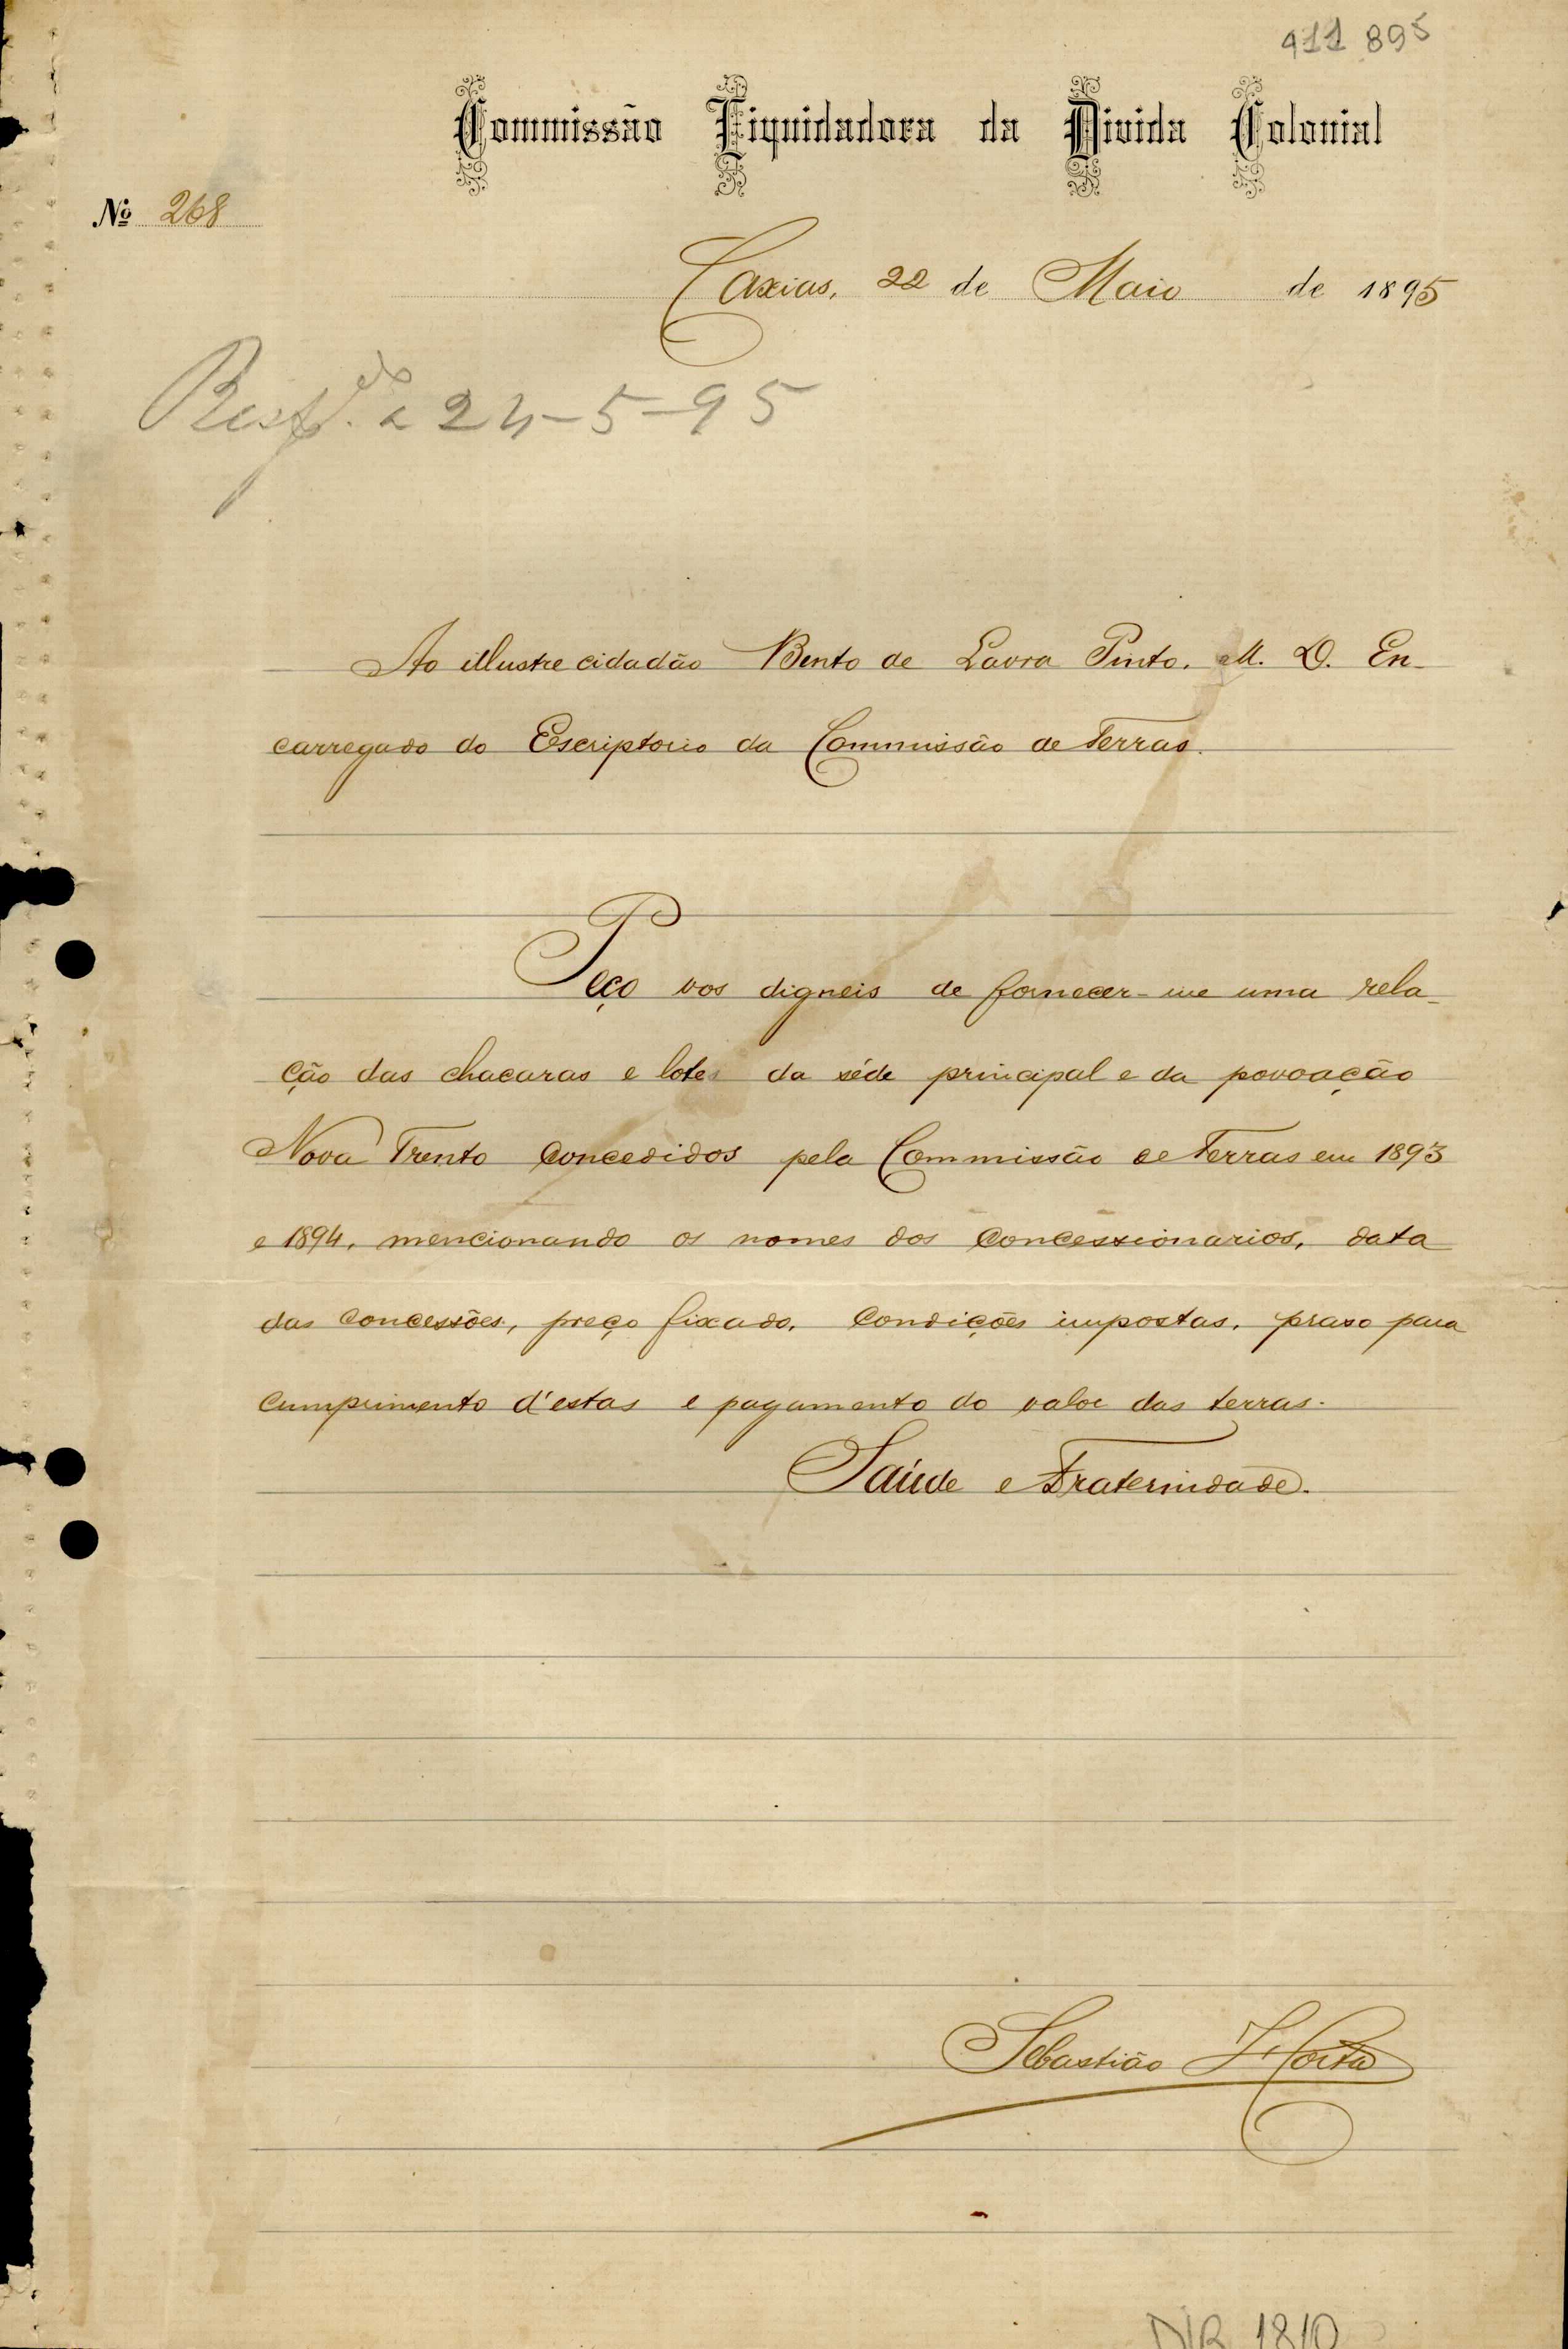 411 895
Commissão Liquidadora da Divida Colonial
Nº 268
Caxias, 22 de Maio de 1895
Resp.do a 24-5-95
Ao illustre cidadão Bento de Lavra Pinto. M. D. En-
carregado do Escriptorio da Commissão de Terras.
Peço vos digneis de fornecer-me uma rela-
ção das chacaras e lotes da séde principal e da povoação
Nova Trento concedidos pela Commissão de Terras em 1893
e 1894, mencionando os nomes dos concessionarios, data
das concessões, preço fixado, condições impostas, praso para
cumprimento d'estas e pagamento do valor das terras.
Saúde e Fraternidade.
Sebastião
DIR 1810